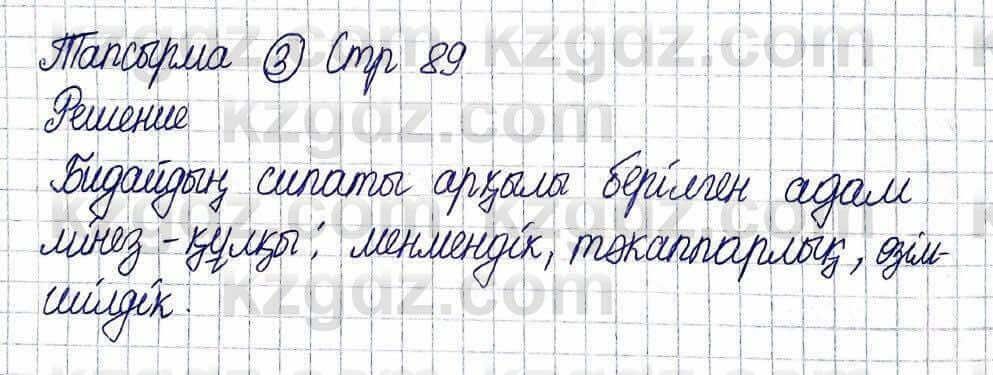 Тапсырма ③ Стр 89
Решение
Бидайдың сипаты арқылы берілген адам
мінез-құлқы: менмендік, тәкаппарлық, өзім-
шілдік.